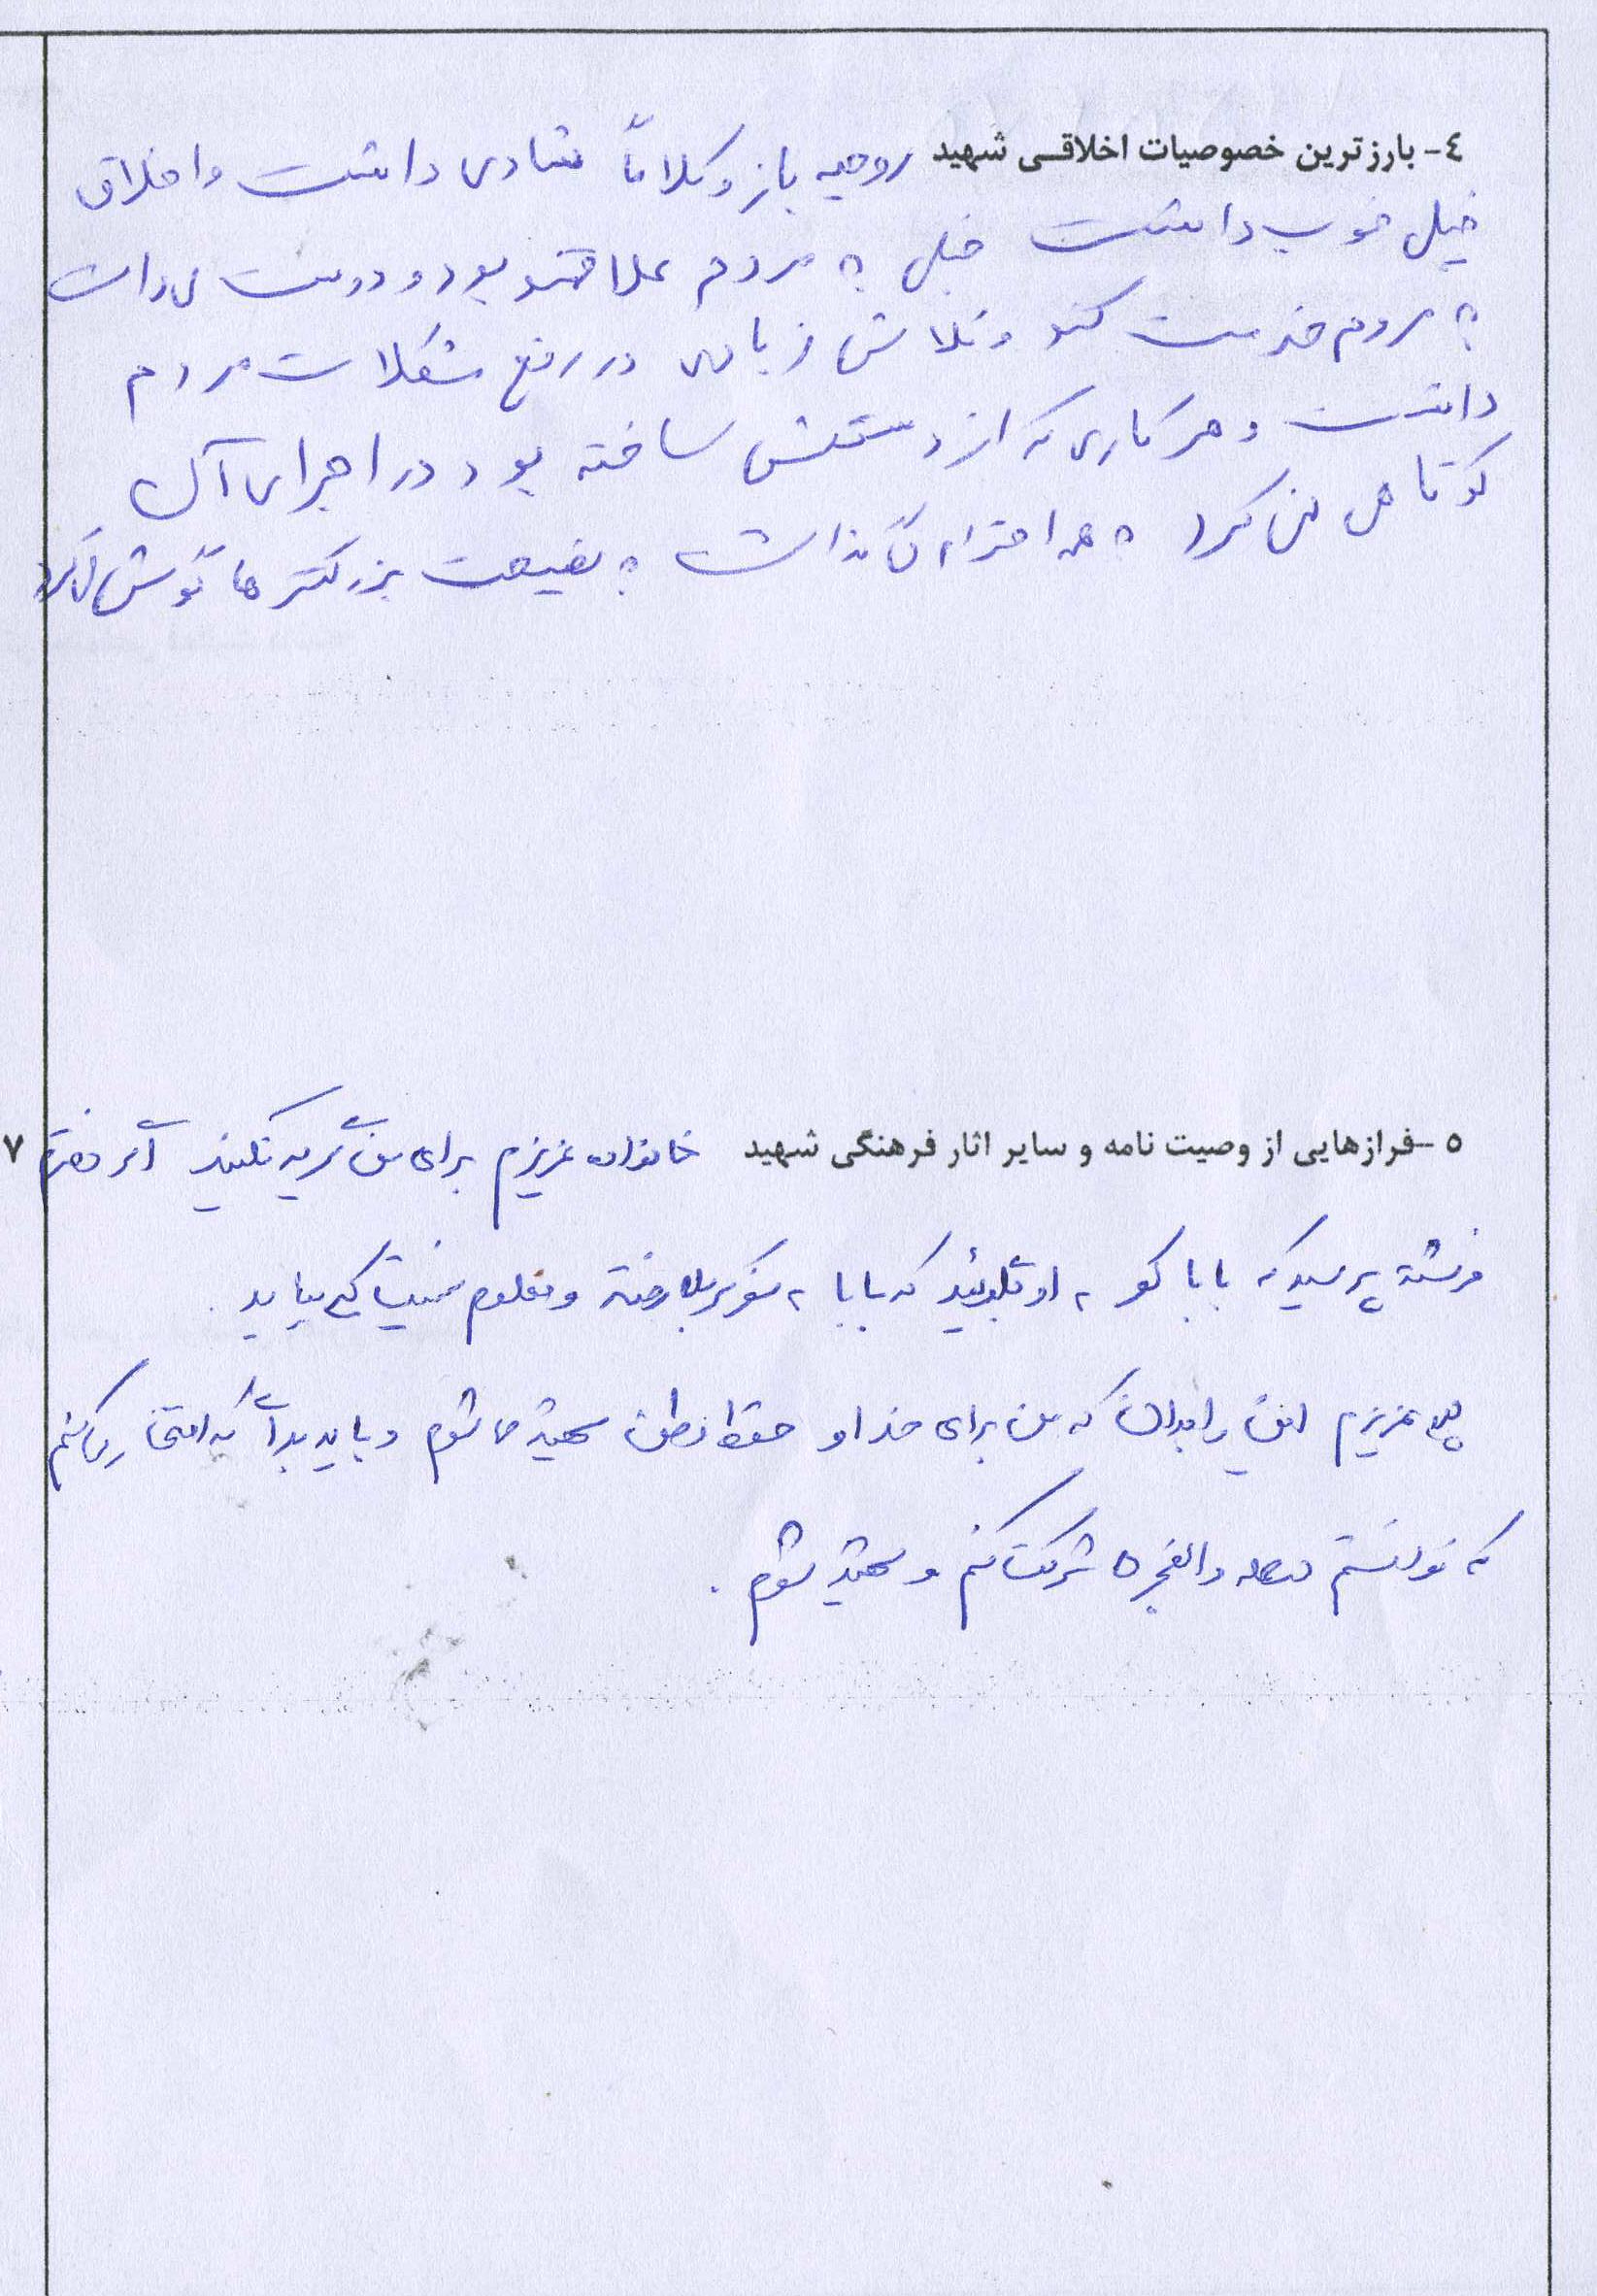 ٤- بارزترین خصوصیات اخلاقی شهید روحیه باز و کلاماً شادی داشت و اخلاق
خیلی خوب داشت خیلی به مردم علاقمند بود و دوست می داشت
به مردم خدمت کند و تلاش زیادی در رفع مشکلات مردم
داشت و هر کاری که از دستش ساخته بود در اجرای آن
کوتاهی نمی کرد به همه احترام می گذاشت به نصیحت بزرگترها گوش می کرد
٥-فرازهایی از وصیت نامه و سایر اثار فرهنگی شهید خانواده عزیزم برای من گریه نکنید اگر دخترم
٧
فرشته پرسید که بابا کو به او بگوئید که بابا به سفر کربلا رفته و معلوم نیست کی بیاید.
عزیزم این را بدان که من برای خدا و حفظ وطن شهید می شوم و باید بدانی که افتخار می کنم
که توانستم در والفجر ٥ شرکت کنم و شهید شوم.